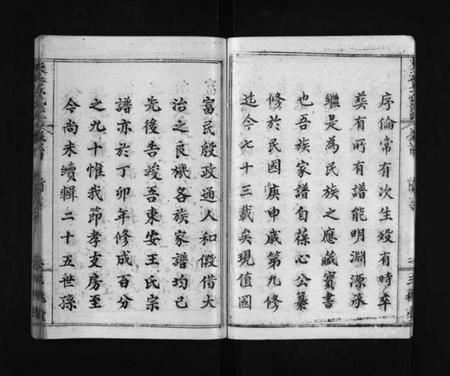 序倫常有次生歿有時卒
葬有所有譜能明淵源承
繼是為民族之應藏寳書
也吾族家譜自葆心公纂
修於民国庚申歲第九修
迄今七十三載矣現值國
富民殷政通人和假借大
治之良機各族家譜均已
先後告竣吾東安王氏宗
譜亦於丁卯年修成百分
之九十惟我節孝支房至
今尚未續輯二十五世孫